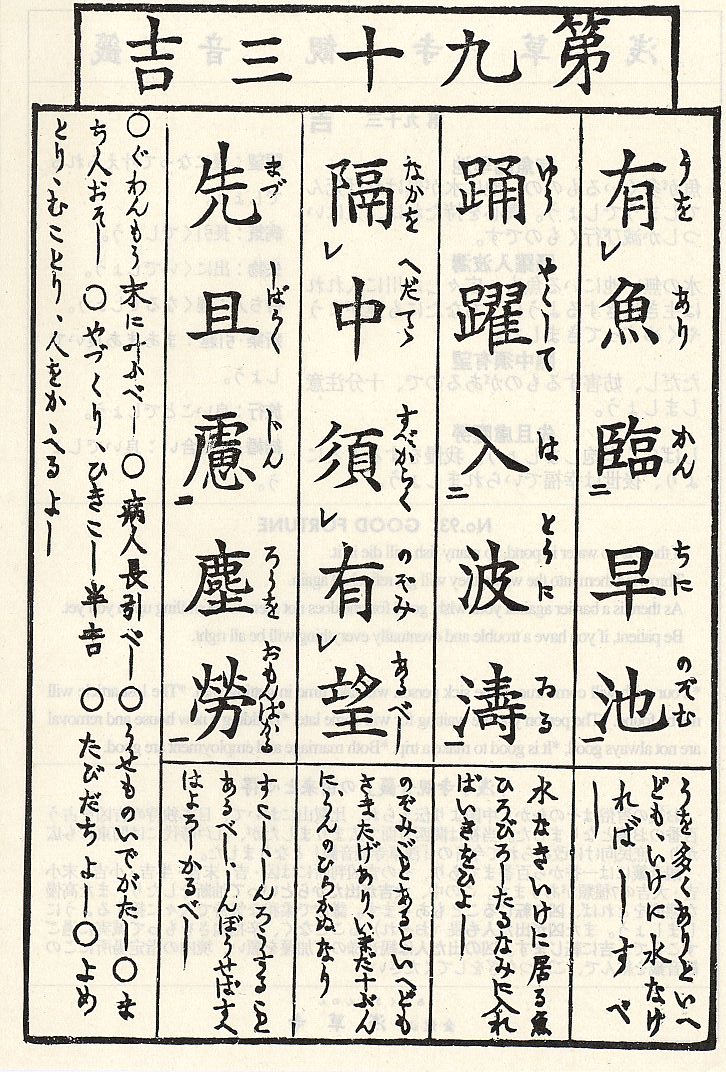 第九十三吉
有レ魚臨二旱池一
うを あり かん ちに のぞむ
踊躍入二波濤
ゆう やして は とうに ゐる
隔レ中須レ有レ望
なかを へだてゝ すべからく のぞみ あるべし
先且慮二塵勞一
まづ しばらく じん ろうを おもんぱかる
うを多くありといへ
どもいけに水なけ
ればしすべ
し
水なきいけに居る魚
ひろびろたるなみに入れ
ばいきをひよし
のぞみごとあるといへども
さまたげあり、いまだ十ぶん
にうんのひらかぬなり
すこし、しんろうすること
あるべし、しんぼうせばすへ
はよろしかるべし
〇ぐわんもう末に叶ふべし〇病人長引べし〇うせものいでがたし〇ま
ち人おそし〇やづくりひきこし半吉〇たびだちよし〇よめ
とりむことり、人をかゝへるよし